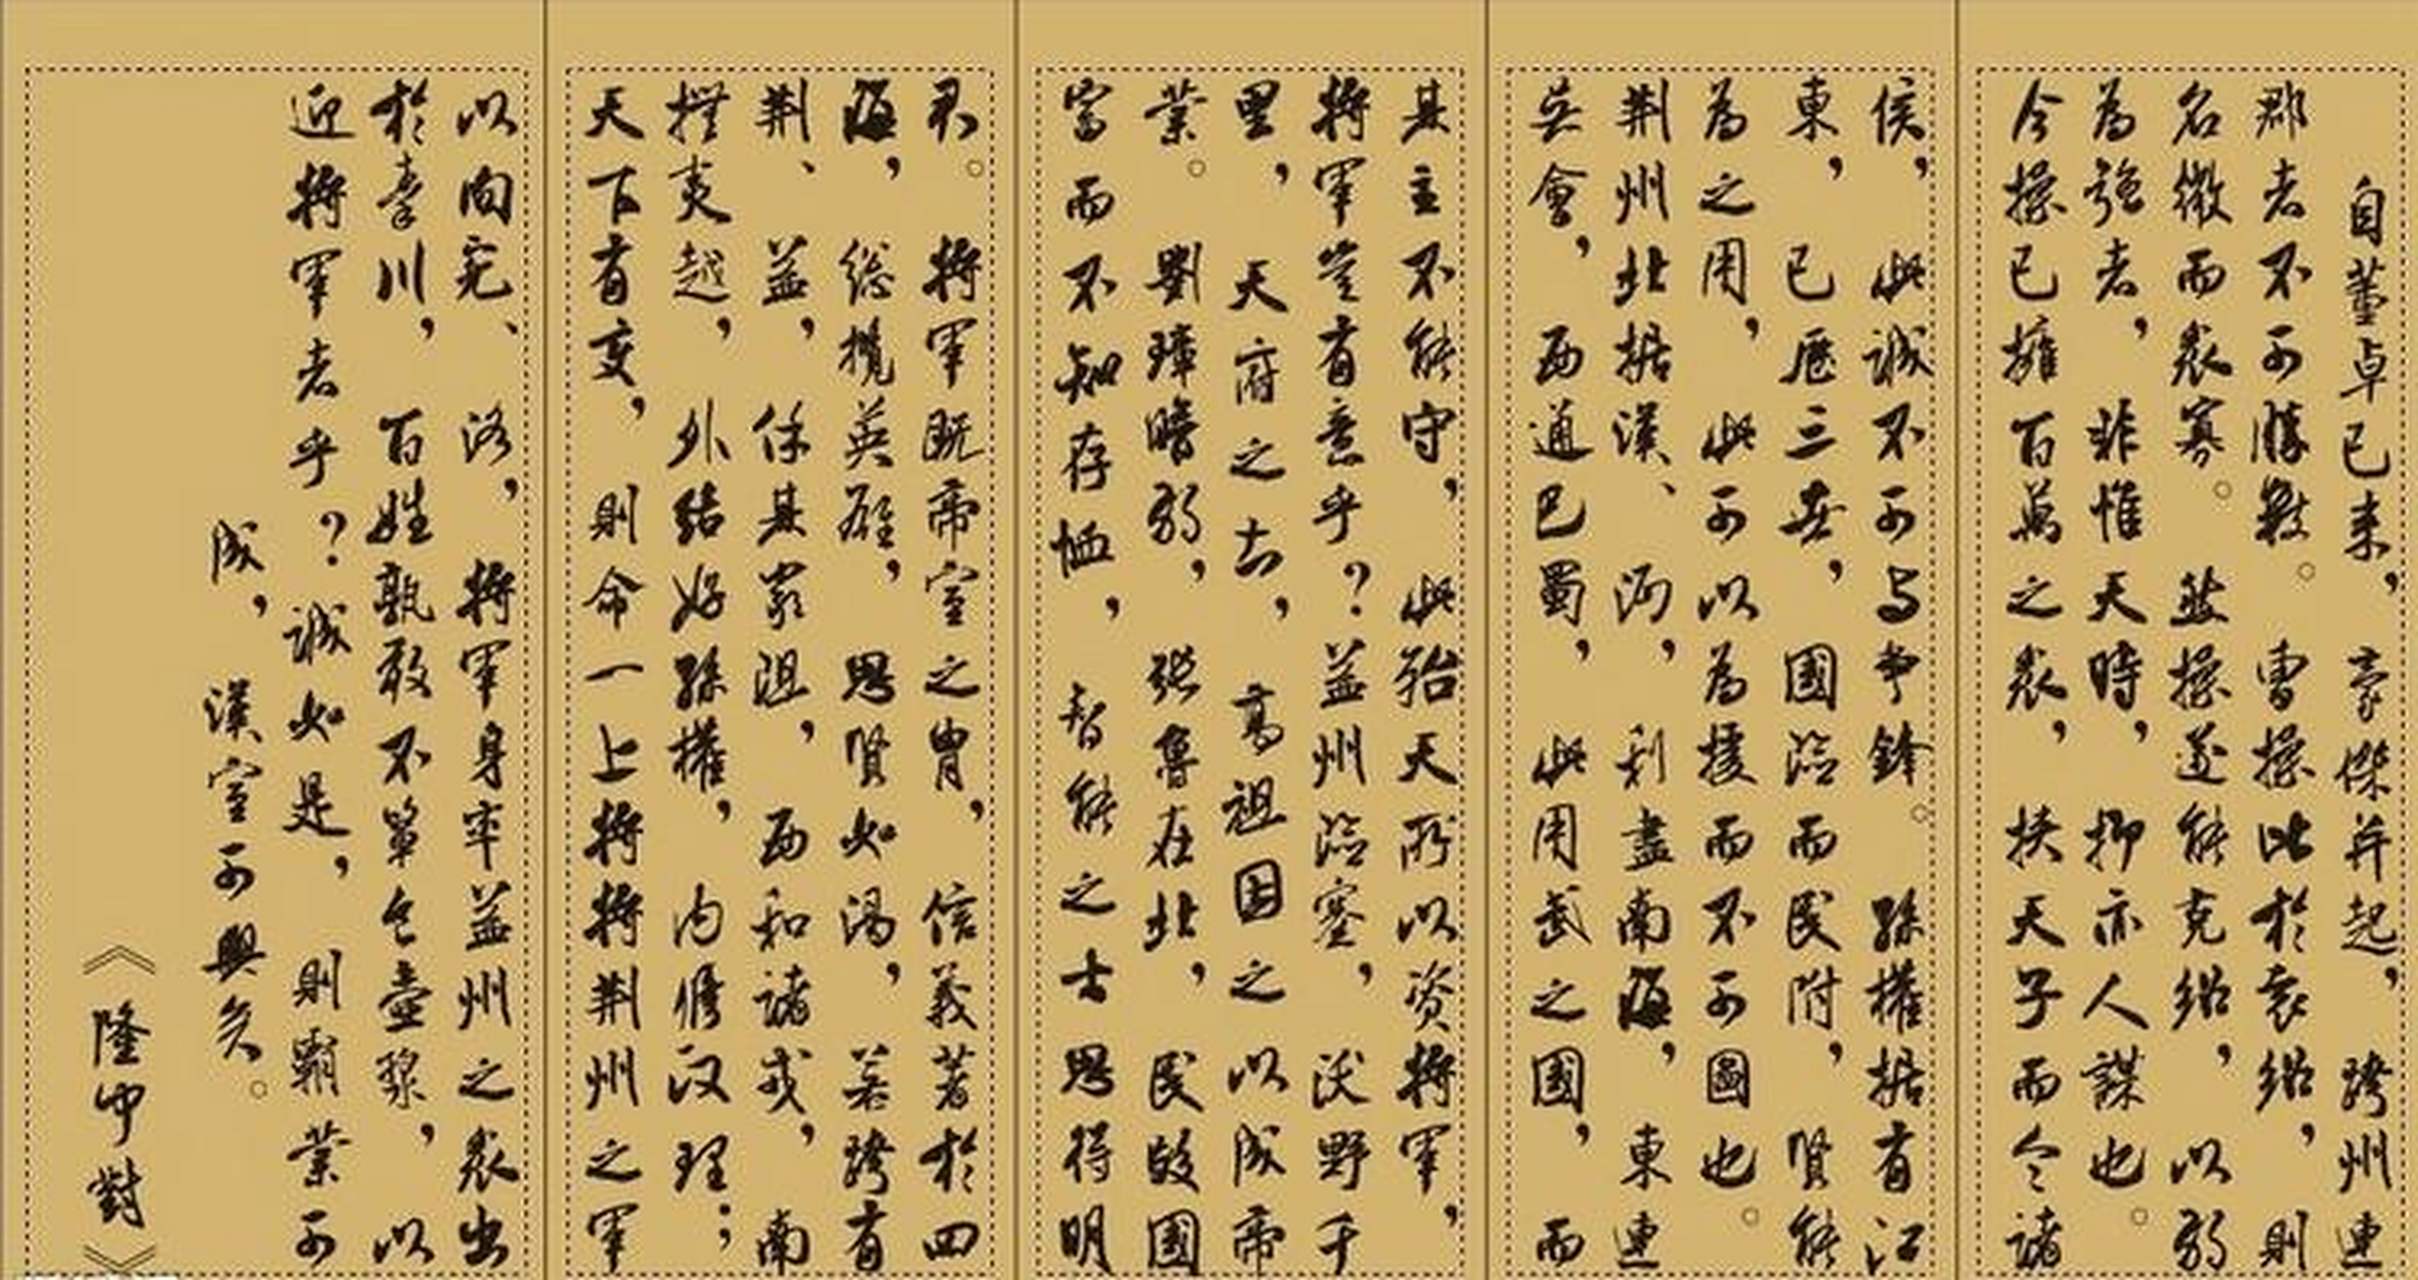 自董卓已来，豪傑并起，跨州連
郡者不可勝數。曹操比於袁紹，則
名微而眾寡。然操遂能克紹，以弱
為強者，非惟天時，抑亦人謀也。
今操已擁百萬之眾，挟天子而令諸
侯，此誠不可与争鋒。孫權据有江
東，已歷三世，國險而民附，賢能
為之用，此可以為援而不可圖也。
荆州北据漢、沔，利盡南海，東連
吴會，西通巴蜀，此用武之國，而
其主不能守，此殆天所以资將軍，
將軍豈有意乎？益州險塞，沃野千
里，天府之土，高祖因之以成帝
業。劉璋暗弱，張魯在北，民殷國
富而不知存恤，智能之士思得明
君。將軍既帝室之胄，信義著於四
海，總攬英雄，思賢如渴，若跨有
荆、益，保其岩阻，西和諸戎，南
撫夷越，外結好孫權，内修政理；
天下有变，則命一上將將荆州之軍
以向宛、洛，將軍身率益州之眾出
於秦川，百姓孰敢不箪食壺漿，以
迎將軍者乎？誠如是，則霸業可
成，漢室可興矣。
《隆中對》